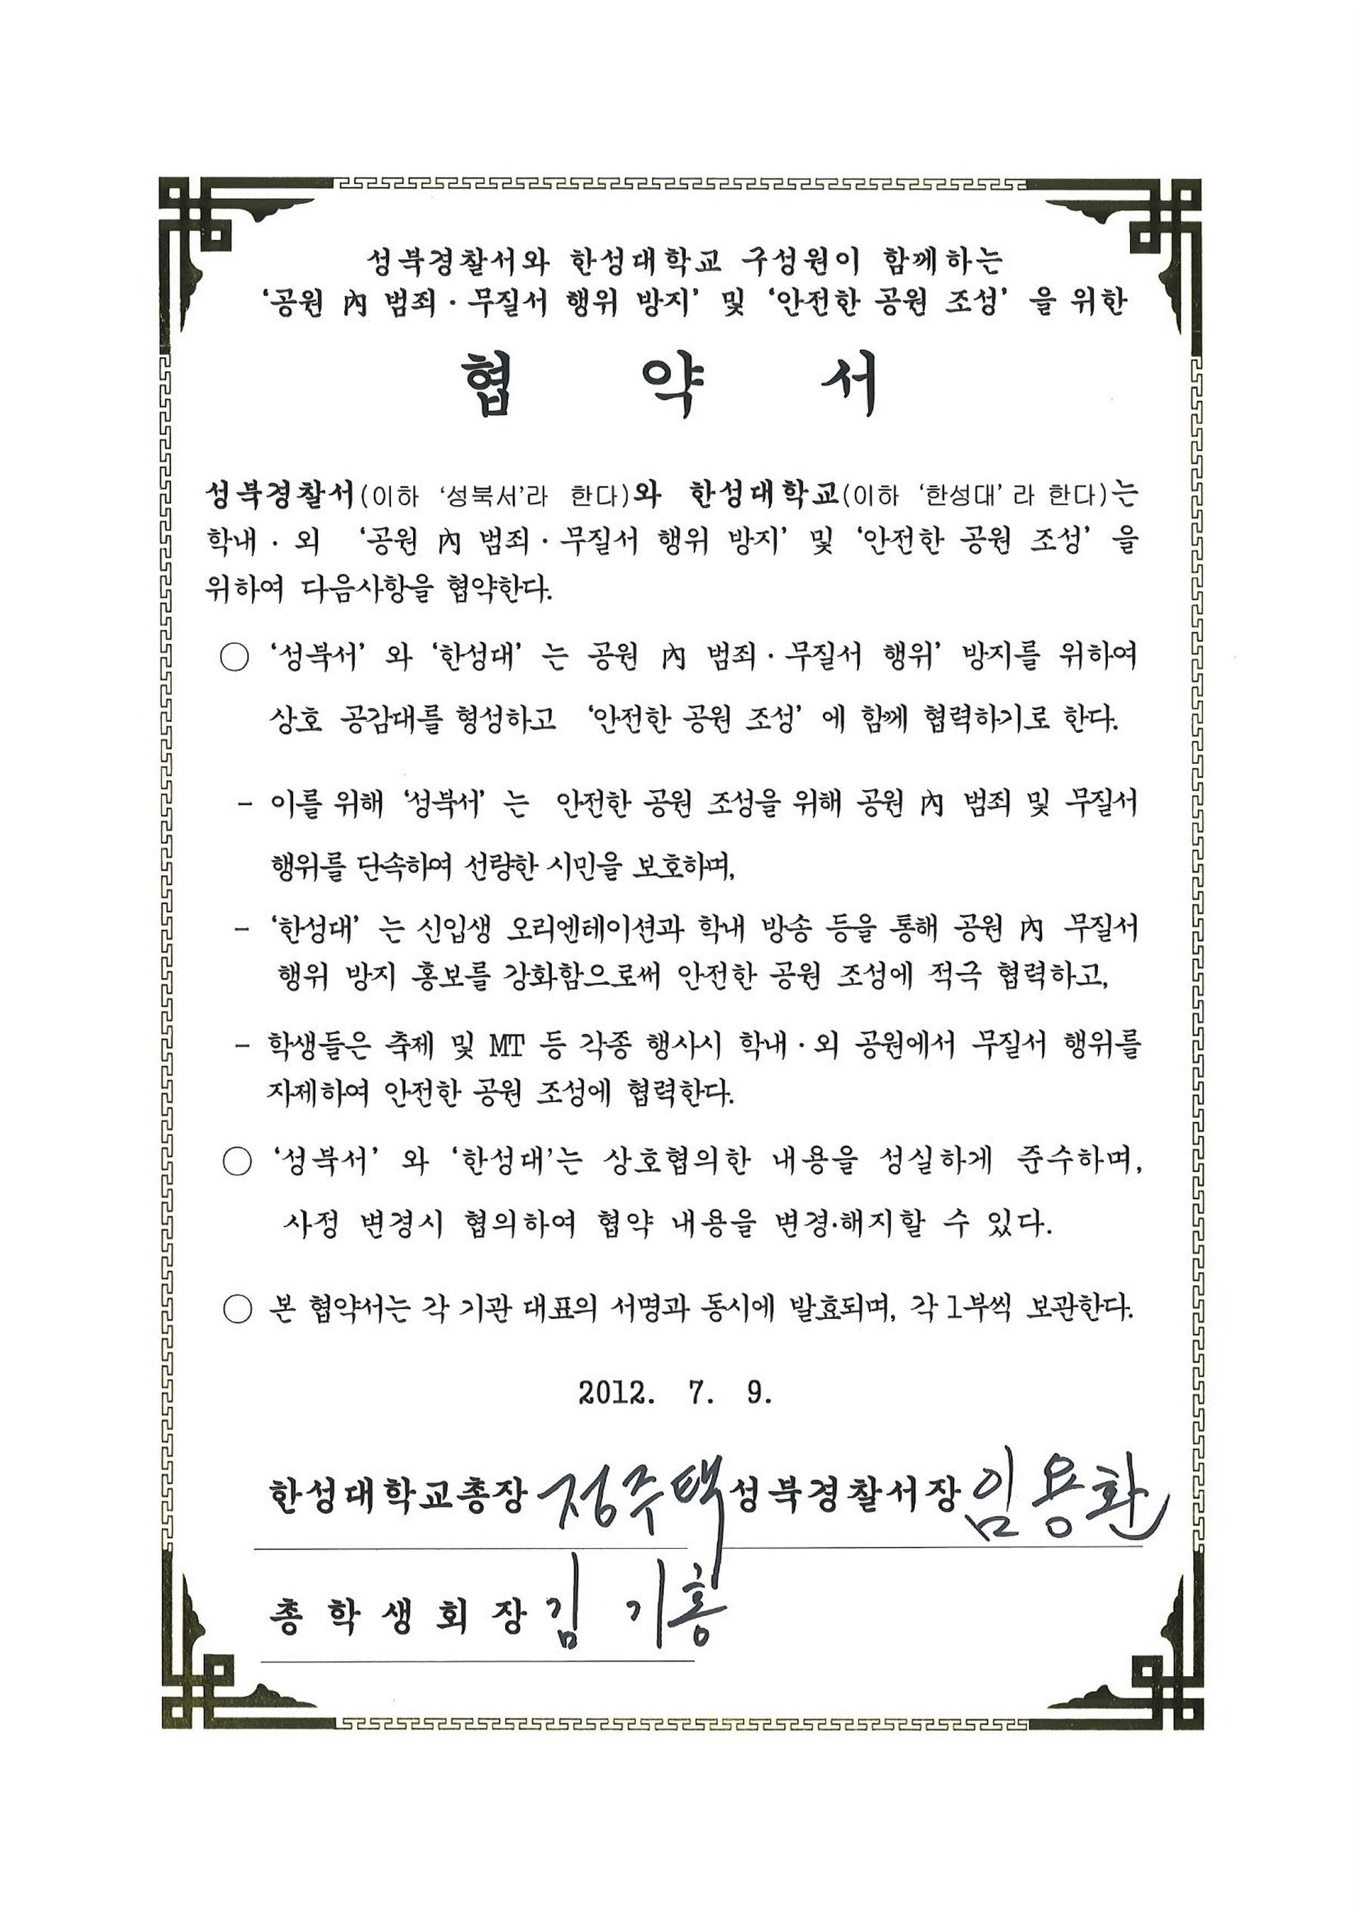 성북경찰서와 한성대학교 구성원이 함께하는
‘공원 內 범죄·무질서 행위 방지’ 및 ‘안전한 공원 조성’ 을 위한
협 약 서
성북경찰서(이하 ‘성북서’라 한다)와 한성대학교(이하 ‘한성대’ 라 한다)는
학내·외 ‘공원 內 범죄·무질서 행위 방지’ 및 ‘안전한 공원 조성’ 을
위하여 다음사항을 협약한다.
○ ‘성북서’ 와 ‘한성대’ 는 공원 內 범죄·무질서 행위’ 방지를 위하여
상호 공감대를 형성하고 ‘안전한 공원 조성’ 에 함께 협력하기로 한다.
- 이를 위해 ‘성북서’ 는 안전한 공원 조성을 위해 공원 內 범죄 및 무질서
행위를 단속하여 선량한 시민을 보호하며,
- ‘한성대’ 는 신입생 오리엔테이션과 학내 방송 등을 통해 공원 內 무질서
행위 방지 홍보를 강화함으로써 안전한 공원 조성에 적극 협력하고,
- 학생들은 축제 및 MT 등 각종 행사시 학내·외 공원에서 무질서 행위를
자제하여 안전한 공원 조성에 협력한다.
○ ‘성북서’ 와 ‘한성대’는 상호협의한 내용을 성실하게 준수하며,
사정 변경시 협의하여 협약 내용을 변경·해지할 수 있다.
○ 본 협약서는 각 기관 대표의 서명과 동시에 발효되며, 각 1부씩 보관한다.
2012. 7. 9.
한성대학교총장 정주택 성북경찰서장 임용환
총 학 생 회 장 김 기홍